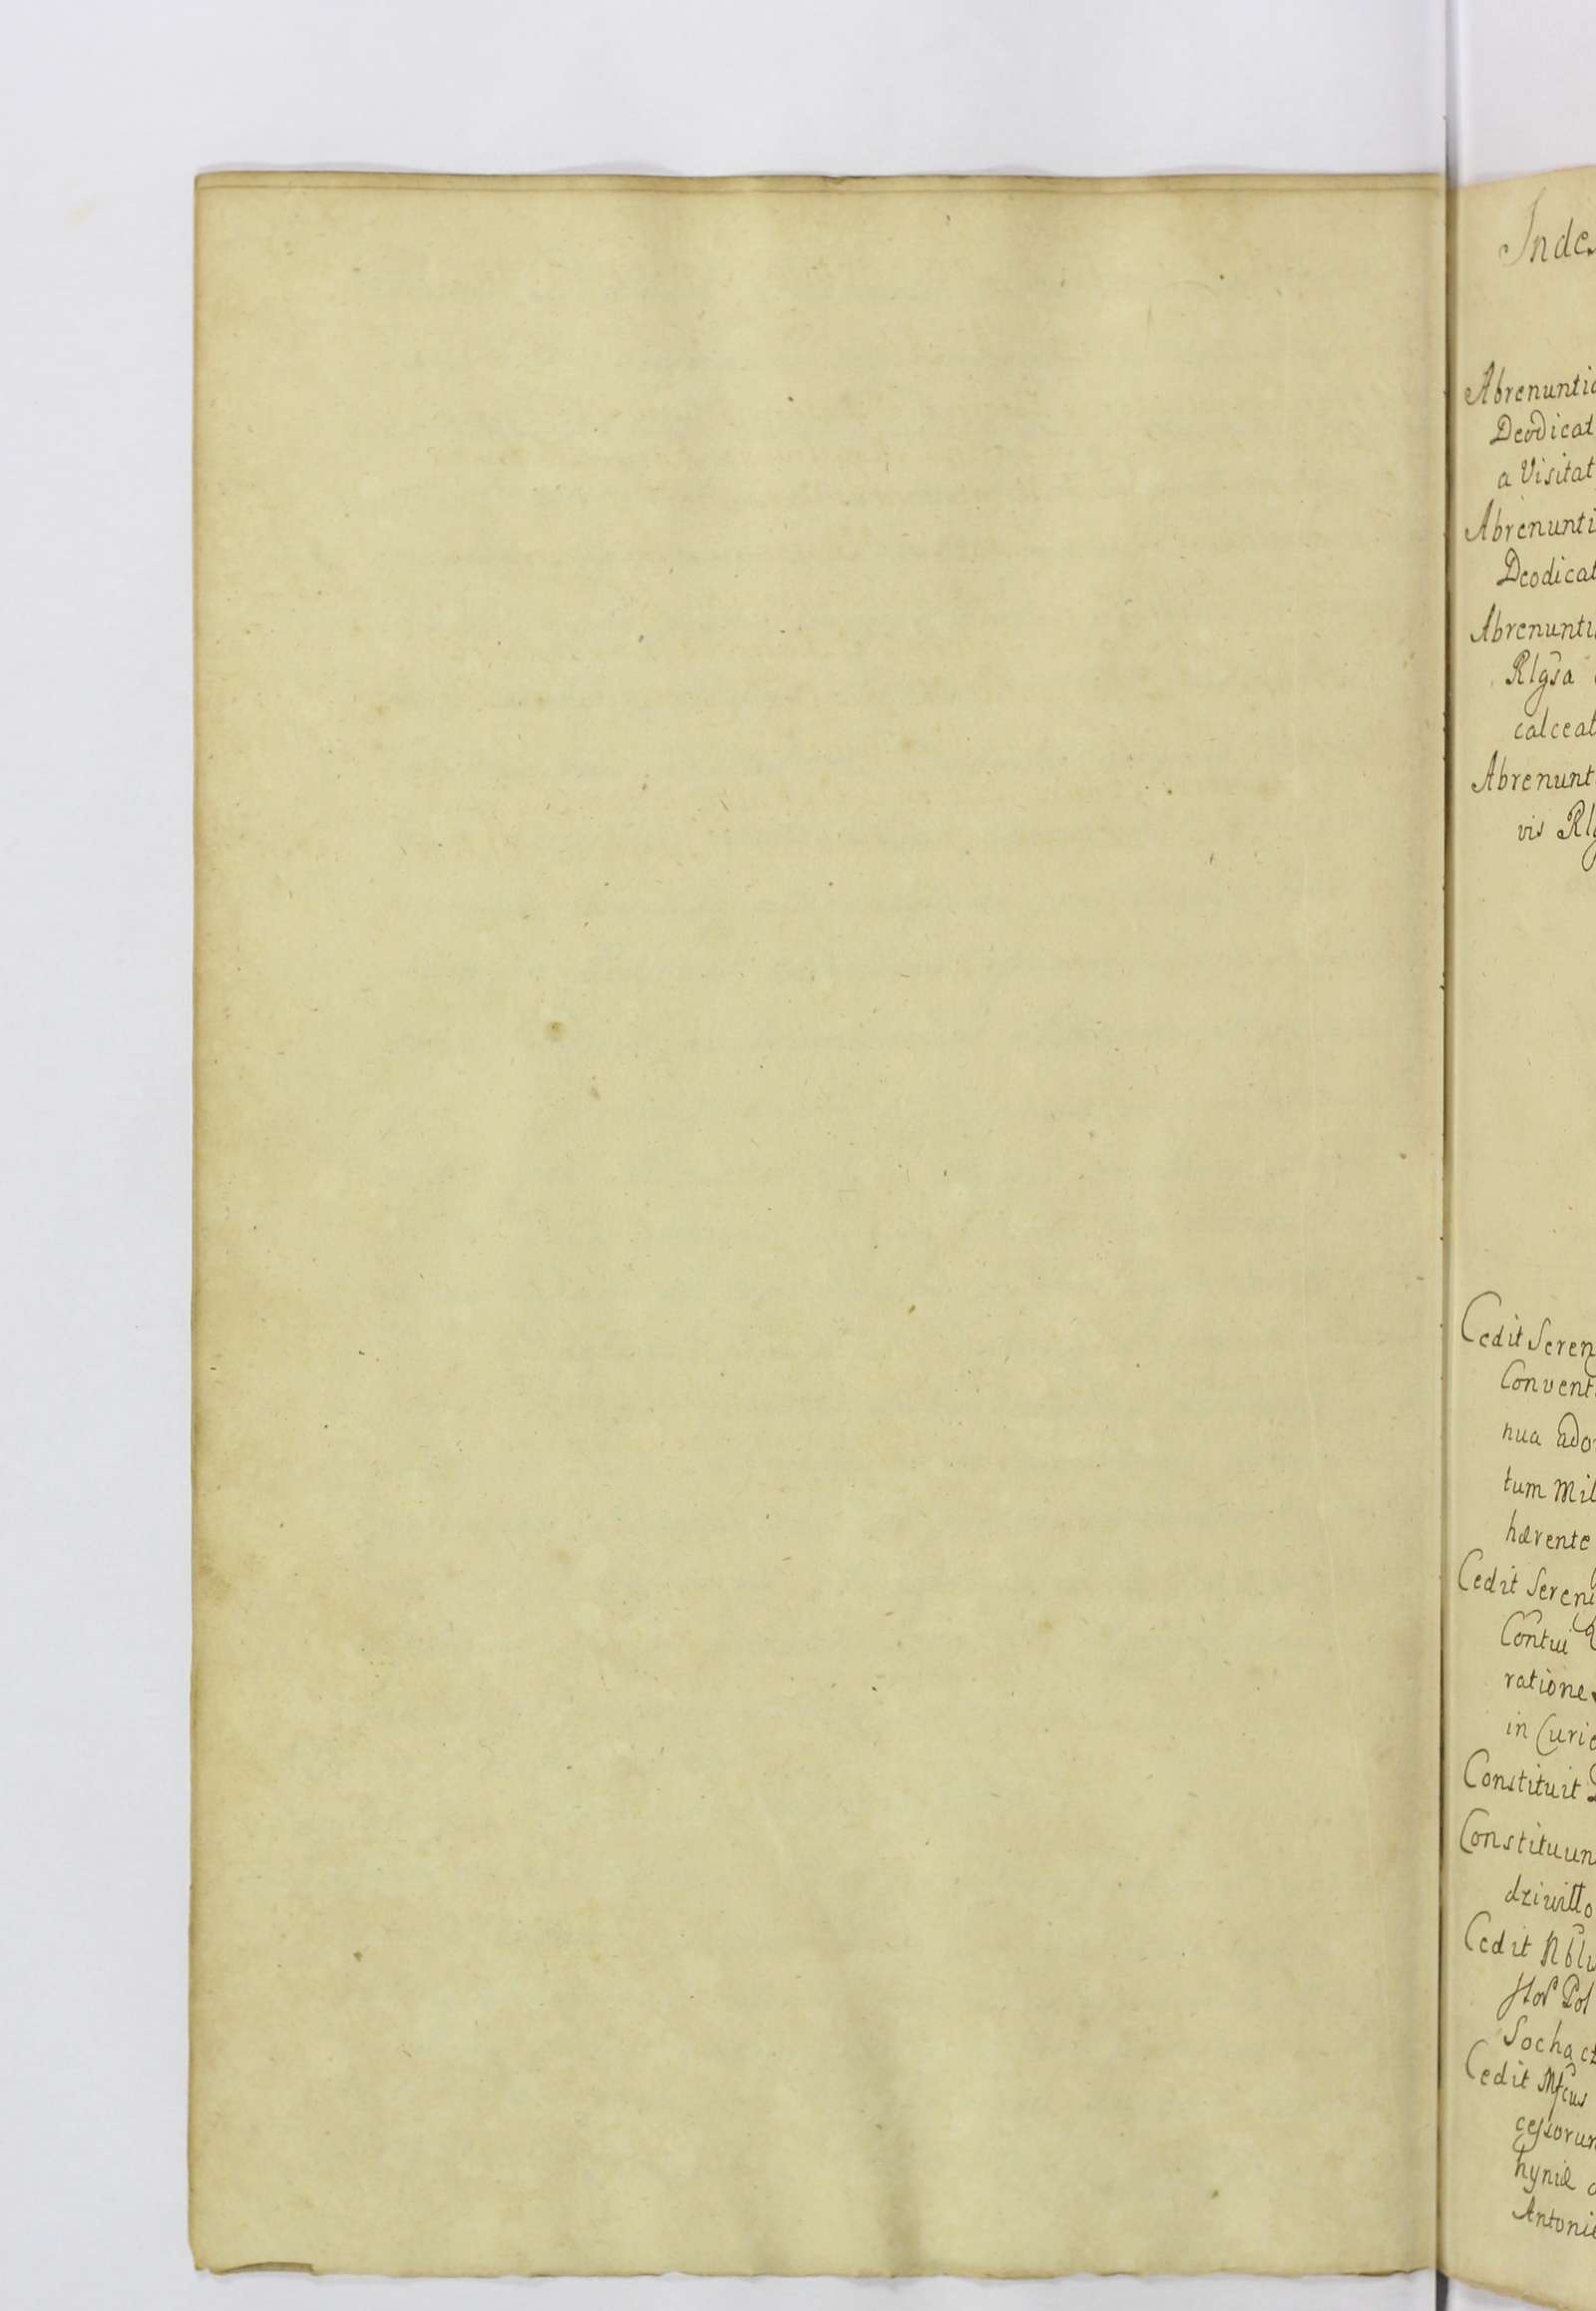 Index
Abrenuntia
Deodicat
a Visitat
Abrenunti
Deodicat
Abrenunti
Rlgsa
calceat
Abrenunt
vis Rlg
Cedit Seren
Convent
nua ado
tum Mil
hærente
Cedit Sereni
Contui
rationes
in Curia
Constituit
Constituun
dziwiłło
Cedit Nblu
Pol
Sochacz
Cedit Mfcus
cessorum
hyniæ
Antonie